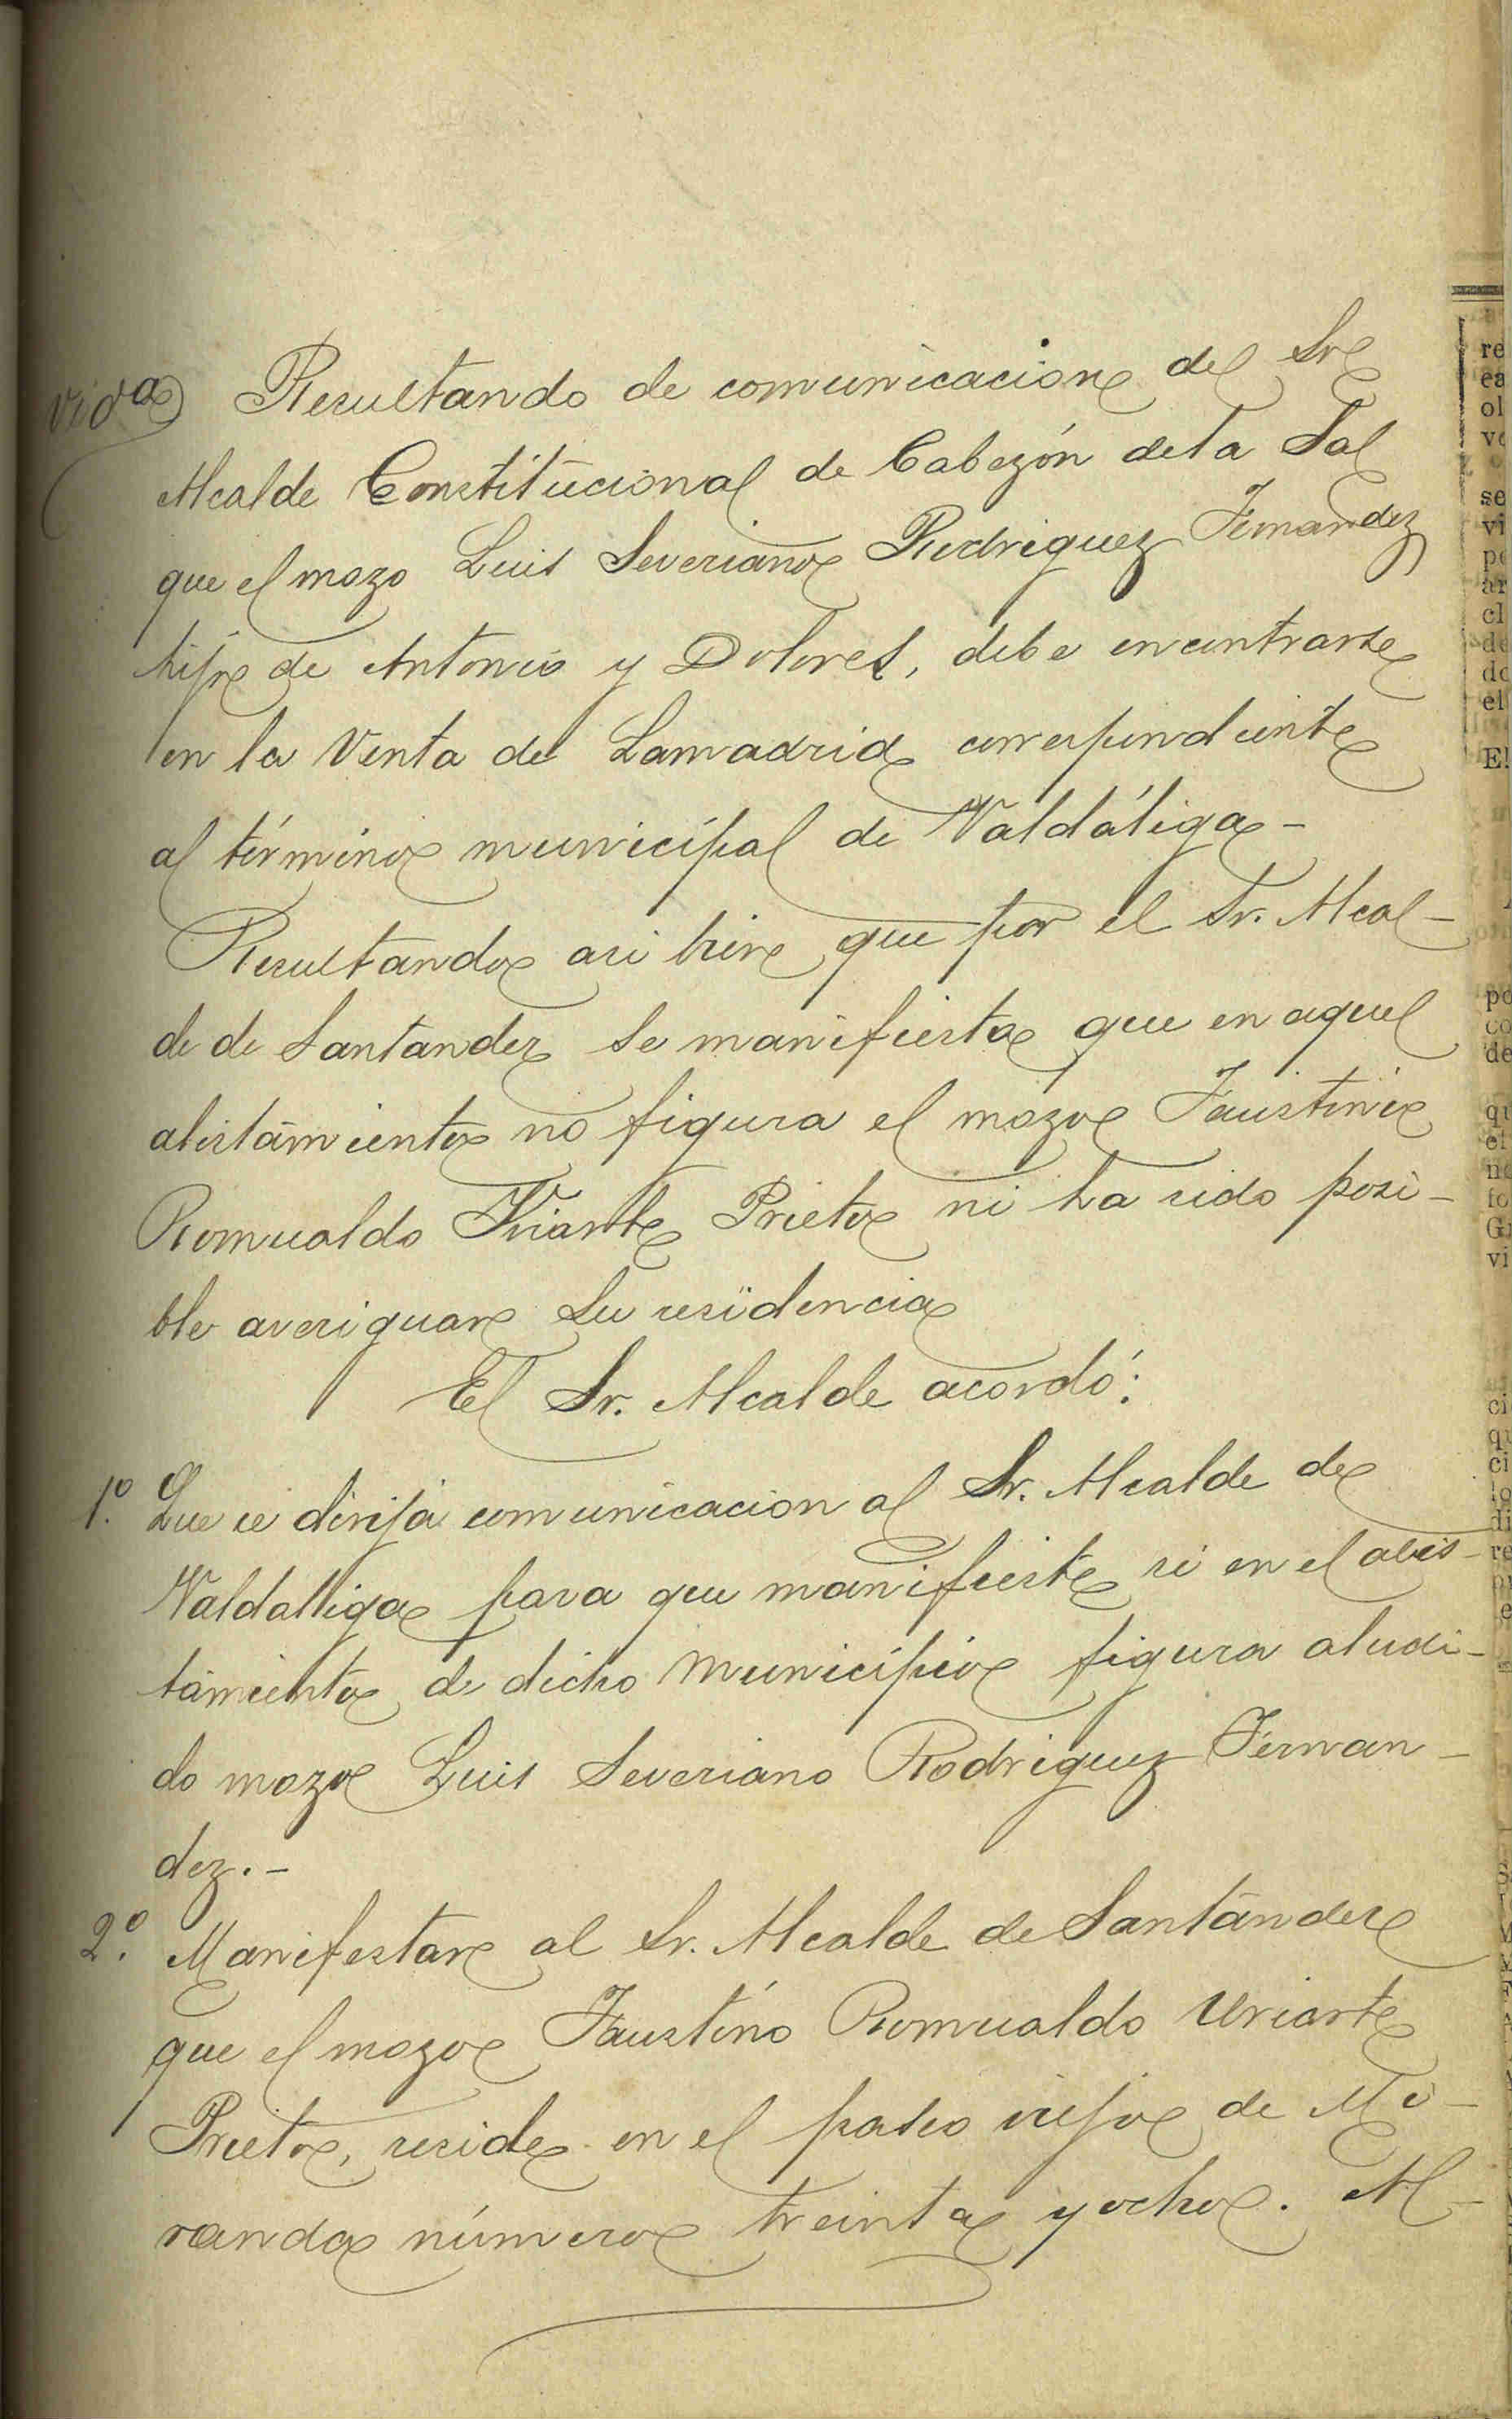 vid.ª Resultando de comunicacion del Sr
Alcalde Constitucional de Cabezón dela Sal
que el mozo Luis Severiano Rodriguez Fernandez
hijo de Antonio y Dolores, debe encontrarse
en la Venta del Lamadrid correspondiente
al término municipal de Valdáliga-
Resultando asi bien que por el Sr. Alcal-
de de Santander se manifiesta que en aquel
alistamiento no figura el mozo Faustino
Romualdo Uriarte Prieto ni ha sido posi-
ble averiguar su residencia
El Sr. Alcalde acordó:
1º. Que se dirija comunicacion al Sr. Alcalde de
Valdaliga para que manifieste si en el alis-
tamiento de dicho Municipio figura aludi-
do mozo Luis Severiano Rodriguez Fernan-
dez.-
2º. Manifestar al Sr. Alcalde de Santander
que el mozo Faustino Romualdo Uriarte
Prieto, reside en el paseo viejo de Mi-
randa número treinta y ocho. Al-